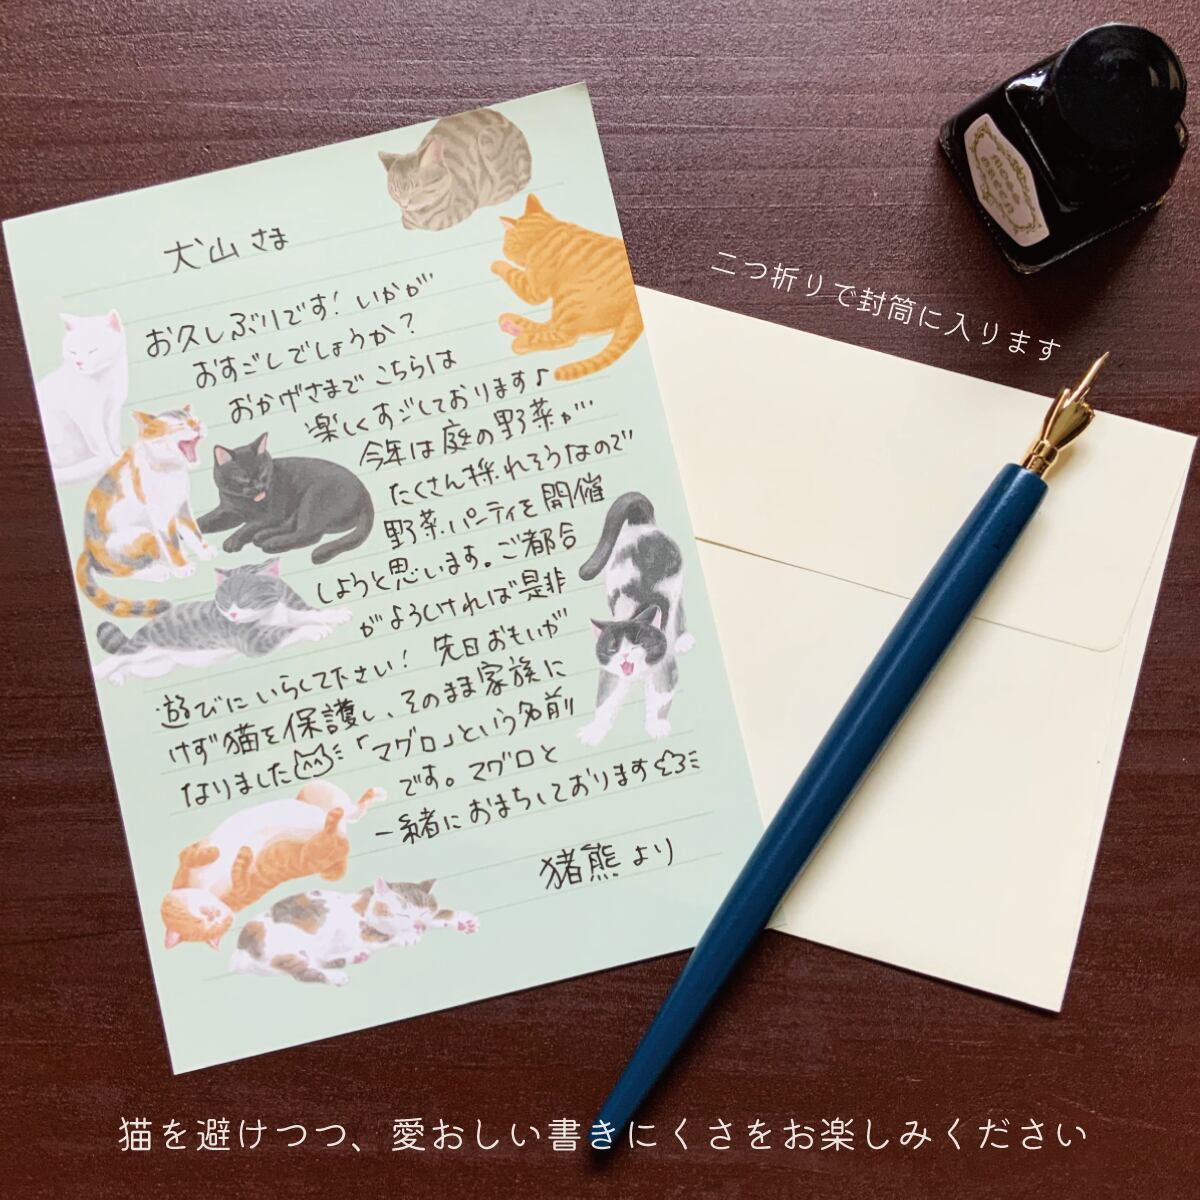 犬山さま
お久しぶりです！いかが
おすごしでしょうか？
おかげさまでこちらは
楽しくすごしております♪
今年は庭の野菜が
たくさん採れそうなので
野菜パーティを開催
しようと思います。ご都合
がよろしければ是非
遊びにいらして下さい！先日おもいが
けず猫を保護し、そのまま家族に
なりました「マグロ」という名前
です。マグロと
一緒におまちしております
猪熊より
moss green
二つ折りで封筒に入ります
猫を避けつつ、愛おしい書きにくさをお楽しみください